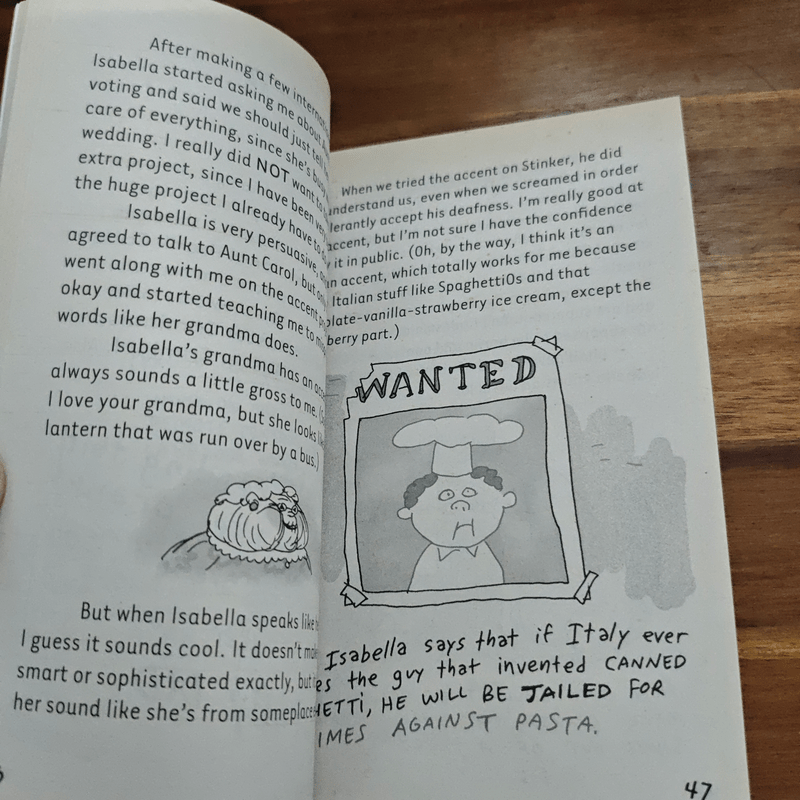 After making a few
Isabella started asking me about
voting and said we should just tell
care of everything, since she's busy
wedding. I really did NOT want to
extra project, since I have been
the huge project I already have to
Isabella is very persuasive,
agreed to talk to Aunt Carol, but
went along with me on the accent
okay and started teaching me to
words like her grandma does.
Isabella's grandma has an
always sounds a little gross to me.
I love your grandma, but she looks
lantern that was run over by a bus.)
But when Isabella speaks like
I guess it sounds cool. It doesn't
smart or sophisticated exactly, but
her sound like she's from someplace
When we tried the accent on Stinker, he did
understand us, even when we screamed in order
lerantly accept his deafness. I'm really good at
accent, but I'm not sure I have the confidence
it in public. (Oh, by the way, I think it's an
an accent, which totally works for me because
Italian stuff like SpaghettiOs and that
olate-vanilla-strawberry ice cream, except the
berry part.)
WANTED
Isabella says that if Italy ever
es the guy that invented CANNED
HETTi, HE WILL BE JAILED FOR
IMES AGAINST PASTA.
47